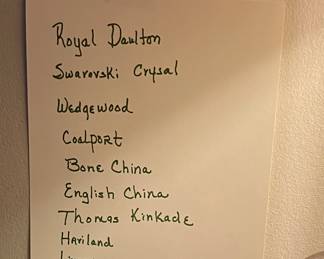 Royal Daulton
Swarovski Crysal
Wedgewood
Coalport
Bone China
English China
Thomas Kinkade
Haviland